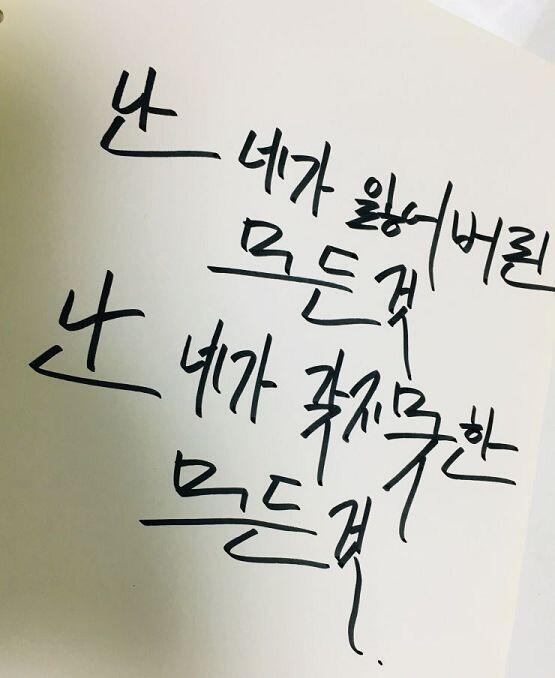 난
네가 잃어버린
모든것
난
네가 갖지못한
모든것.